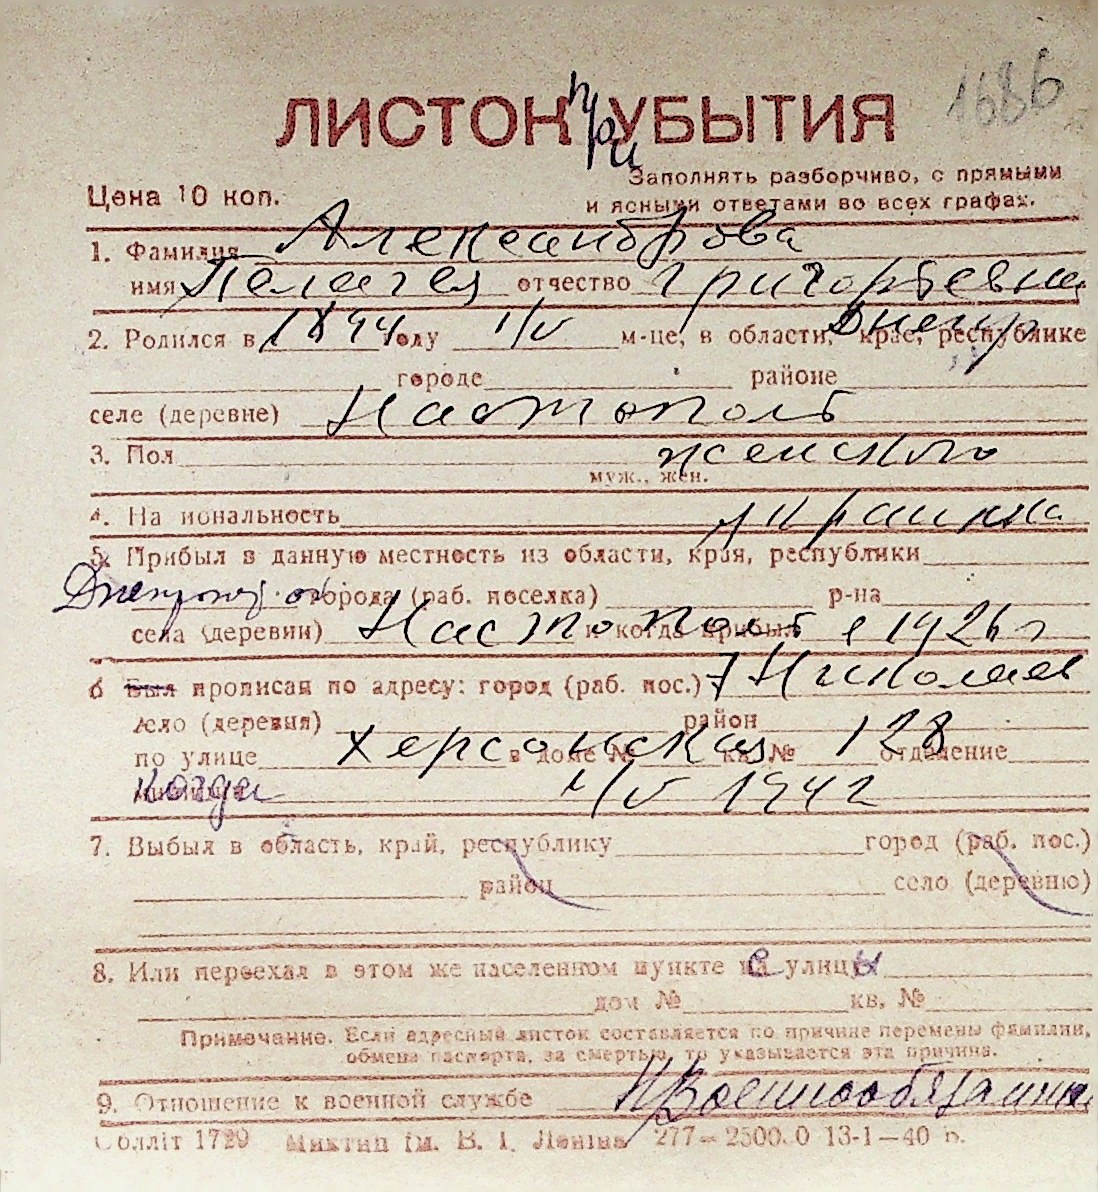 1686
ЛИСТОК при УБЫТИЯ
Заполнять разборчиво, с прямыми
Цена 10 коп.
и ясными ответами во всех графах.
1. Фамилия Александрова
имя Пелагея отчество Григорьевна
2. Родился в 1894 году 1/V м-це, в области, крае, республике Днепр
городе районе
селе (деревне) Настополь
3. Пол женского
муж., жен.
4. На иональность украинка
5. Прибыл в данную местность из области, края, республики
города (раб. поселка) р-на
села (деревни) Настополь и когда прибыл с 1926 г
6 Был прописан по адресу: город (раб. пос.) г Николаев
село (деревня) район
по улице Херсонская в доме № кв. № 128 отделение
когда 1/V 1942
7. Выбыл в область, край, республику город (раб. пос.)
район село (деревню)
8. Или переехал в этом же населенном пункте с улицы
дом № кв. №
Примечание. Если адресный листок составляется по причине перемены фамилии,
обмена паспорта, за смертью, то указывается эта причина.
9. Отношение к военной службе Н/Военнообязанная
Обллiт 1729 iм. В. I. Ленiна 277—2500.0 13-1—40 р.